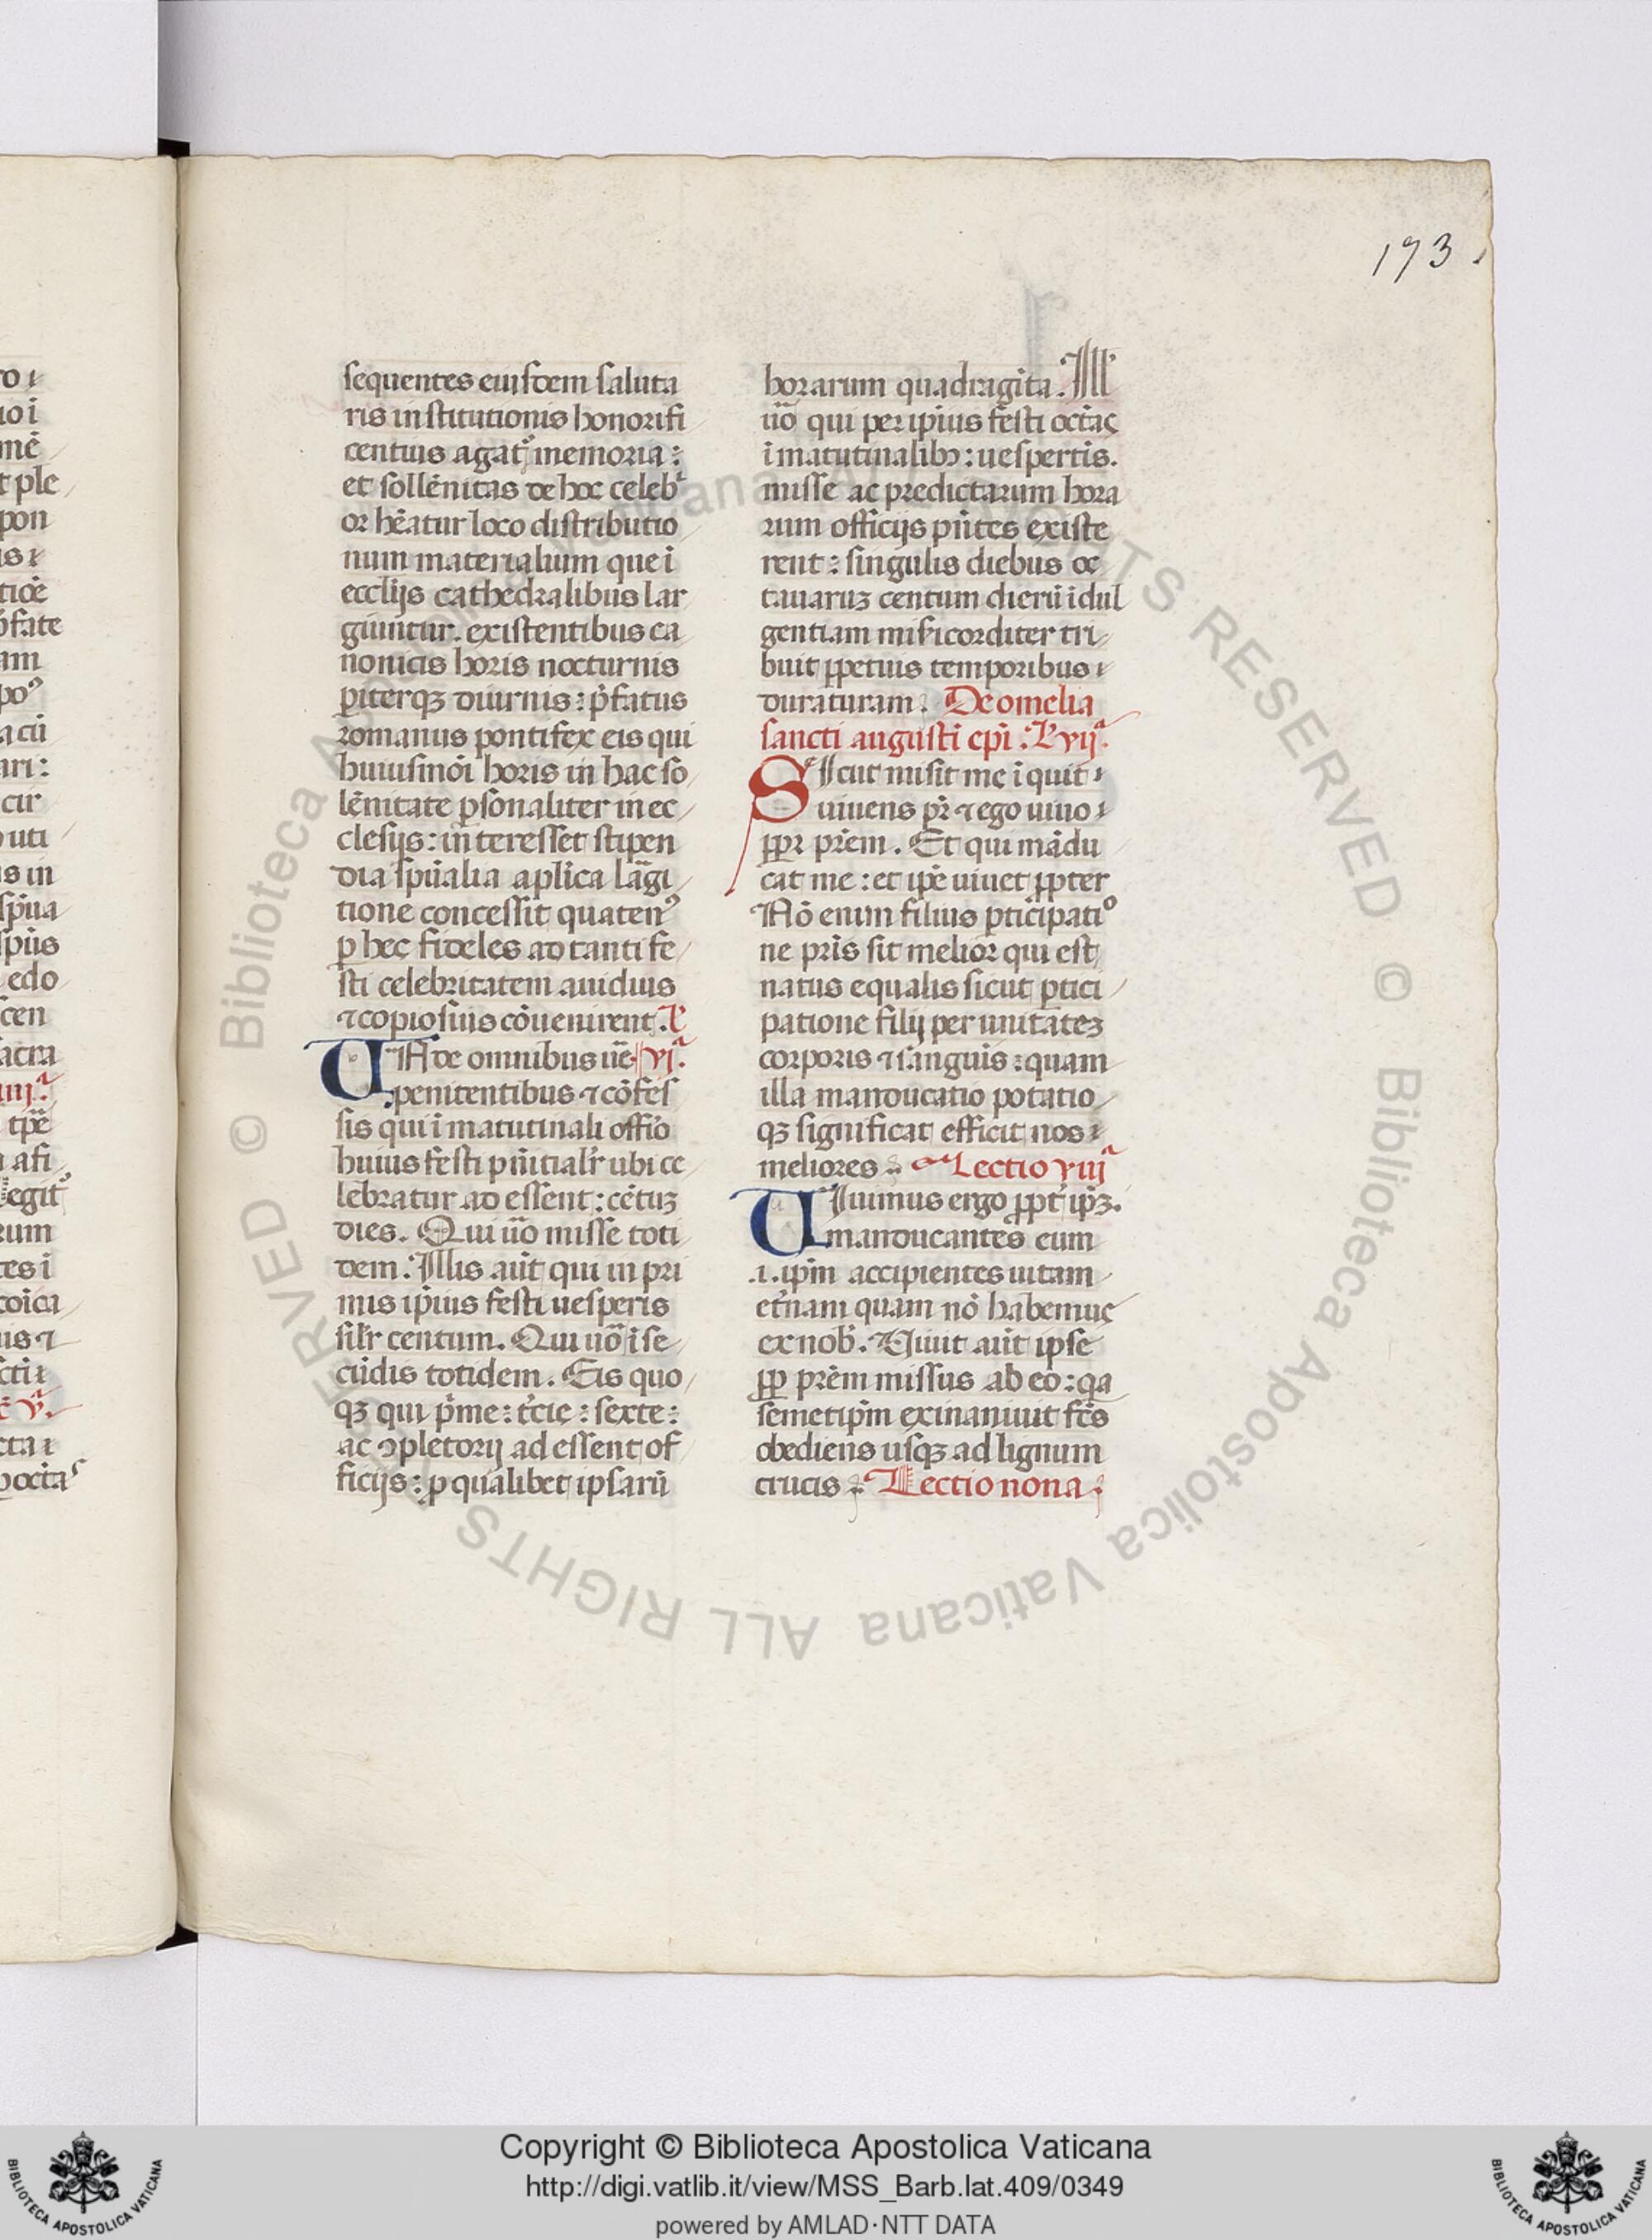 173
sequentes eiusdem saluta
ris institutionis honorifi
centius agat᷑ memoria:
et sollēnitas de hoc celeb
or hēatur loco distributio
num materialium que ī
eccliis cathedralibus lar
giuntur. existentibus ca
nonicis horis nocturnis
ꝑiterqꝫ diurnis: p̄fatus
romanus pontifex eis qui
huiusmōi horis in hac so
lēnitate ꝑsonaliter in ec
clesijs: interesset stipen
dia spūalia aplīca lāgi
tione concessit quatenꝰ
ꝑ hec fideles ad tanti fe
sti celebritatem auidius
⁊ copiosius cōuenirent. L
VN de omnibus ūe vjª.
penitentibus ⁊ cōfes
sis qui ī matutinali offīo
huius festi pn̄tialr̄ ubi ce
lebratur ad essent: cētuꝫ
dies. Qui ūo misse toti
dem. Illis aūt qui in pri
mis ip̄ius festi uesperis
silr̄ centum. Qui uō ī se
cūdis totidem. Eis quo
qꝫ qui p̄me: t̄cie: sexte:
ac ꝯpletorij ad essent of
ficijs: ꝑ qualibet ipsarū
horarum quadragīta. Illˀ
uō qui per ip̄ius festi octāꝭ
ī matutinalibꝫ: uespertis.
misse ac predictarum hora
rum officijs pn̄tes existe
rent: singulis diebus oc
tauaruꝫ centum dierū īdul
gentiam misi̅corditer tri
buit ꝑpetuis temporibus
duraturam. De omelia
sancti augustī epī. L vijª.
SIcut misit me īquit
uiuens pr̄ ⁊ ego uiuo
ꝓpr̄ pr̄em. Et qui mādu
cat me: et ip̄e uiuet ꝓpter
Nō enim filius ꝑticipatiº
ne pr̄is fit melior qui est
natus equalis sicut ꝑtici
patione filij per unitateꝫ
corporis ⁊ sāguīs: quam
illa manducatio potatio
qꝫ significat efficit nos
meliores. Lectio viijª
VIuimus ergo ꝓpt̄ ip̄ꝫ.
manducantes eum
.i. ip̄m accipientes uitam
et̄nam quam nō habemuꝭ
ex nob̄. Viuit aūt ipse
ꝓp̄ pr̄em missus ab eo: qa
semetip̄m exinaniuit fc̄s
obediens usqꝫ ad lignum
crucis. Lectio nona.
© Biblioteca Apostolica Vaticana ALL RIGHTS RESERVED
© Biblioteca Apostolica Vaticana ALL RIGHTS RESERVED
Copyright © Biblioteca Apostolica Vaticana
http://digi.vatlib.it/view/MSS_Barb.lat.409/0349
powered by AMLAD·NTT DATA
BIBLIOTECA APOSTOLICA VATICANA
BIBLIOTECA APOSTOLICA VATICANA